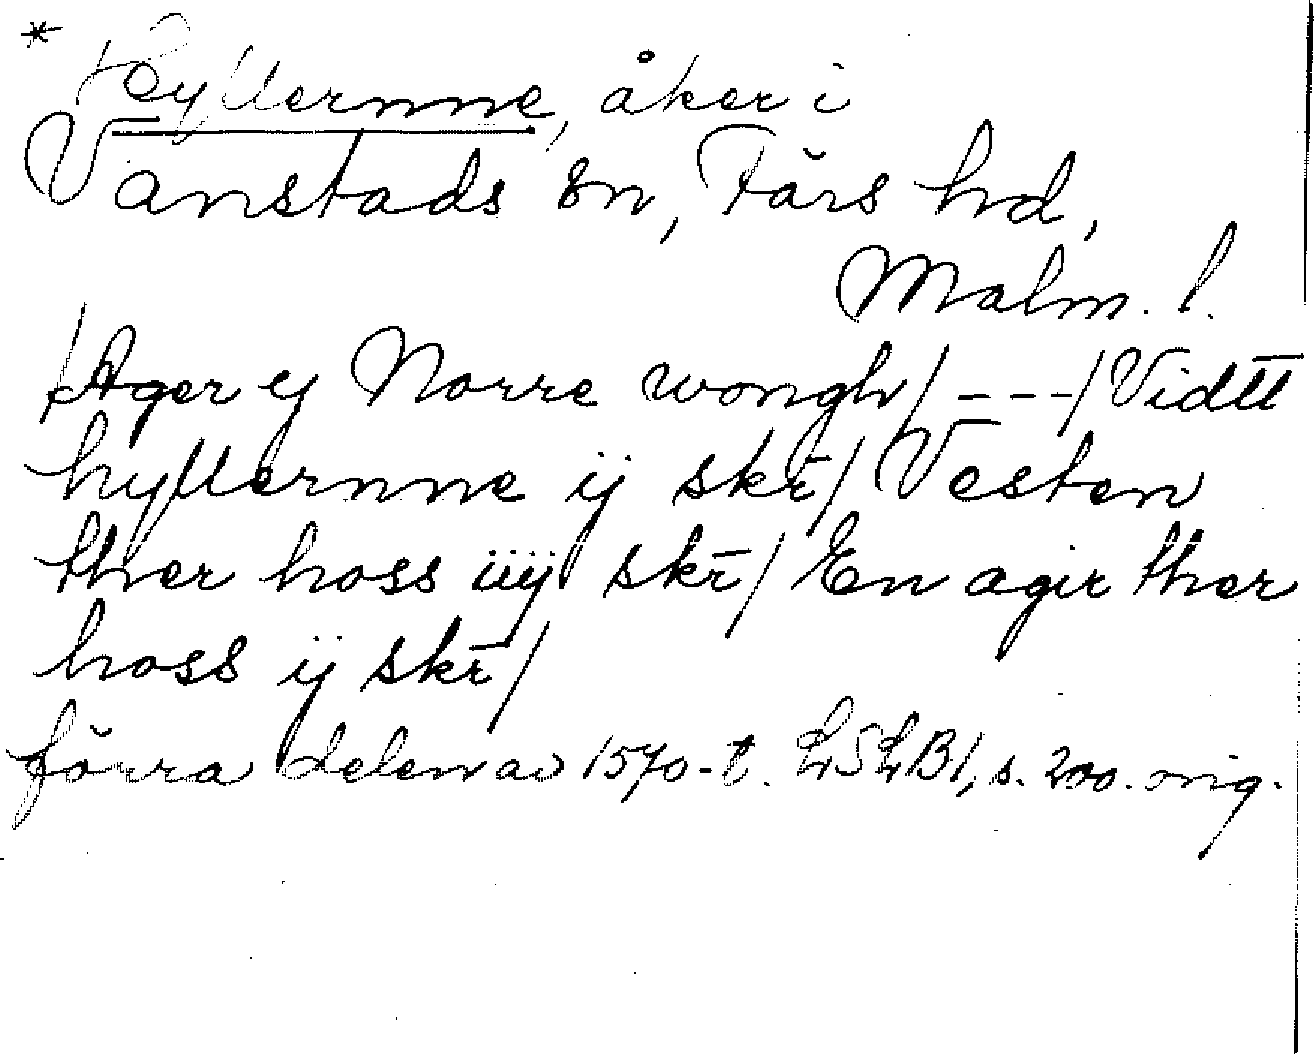 * Hyllernne, åker i
Vanstads sn, Färs hd,
Malm. l.
/Ager ij Norre wongh/ - - - / Vidtt
hyllernne ij skr̄/ Vesten
ther hoss iiij skr̄/ En agir ther
hoss ij skr̄/
förra delen av 1570-t. LSLB1, s. 200. orig.